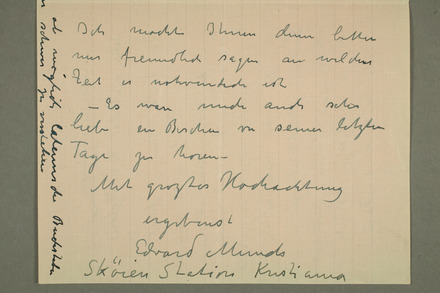 Ich möchte Ihnen dann bitten
mir freundlich sagen an welchen
Zeit es notwendich ist
– Es war mich auch sehr
liebe en Bischen von seiner letzten
Tage zu horen –
Mit grosster Hochachtung
ergebenst
Edvard Munch
Skøien Station Kristiania
ob möglich lateinische Buchstaben
schwer zu verstehen